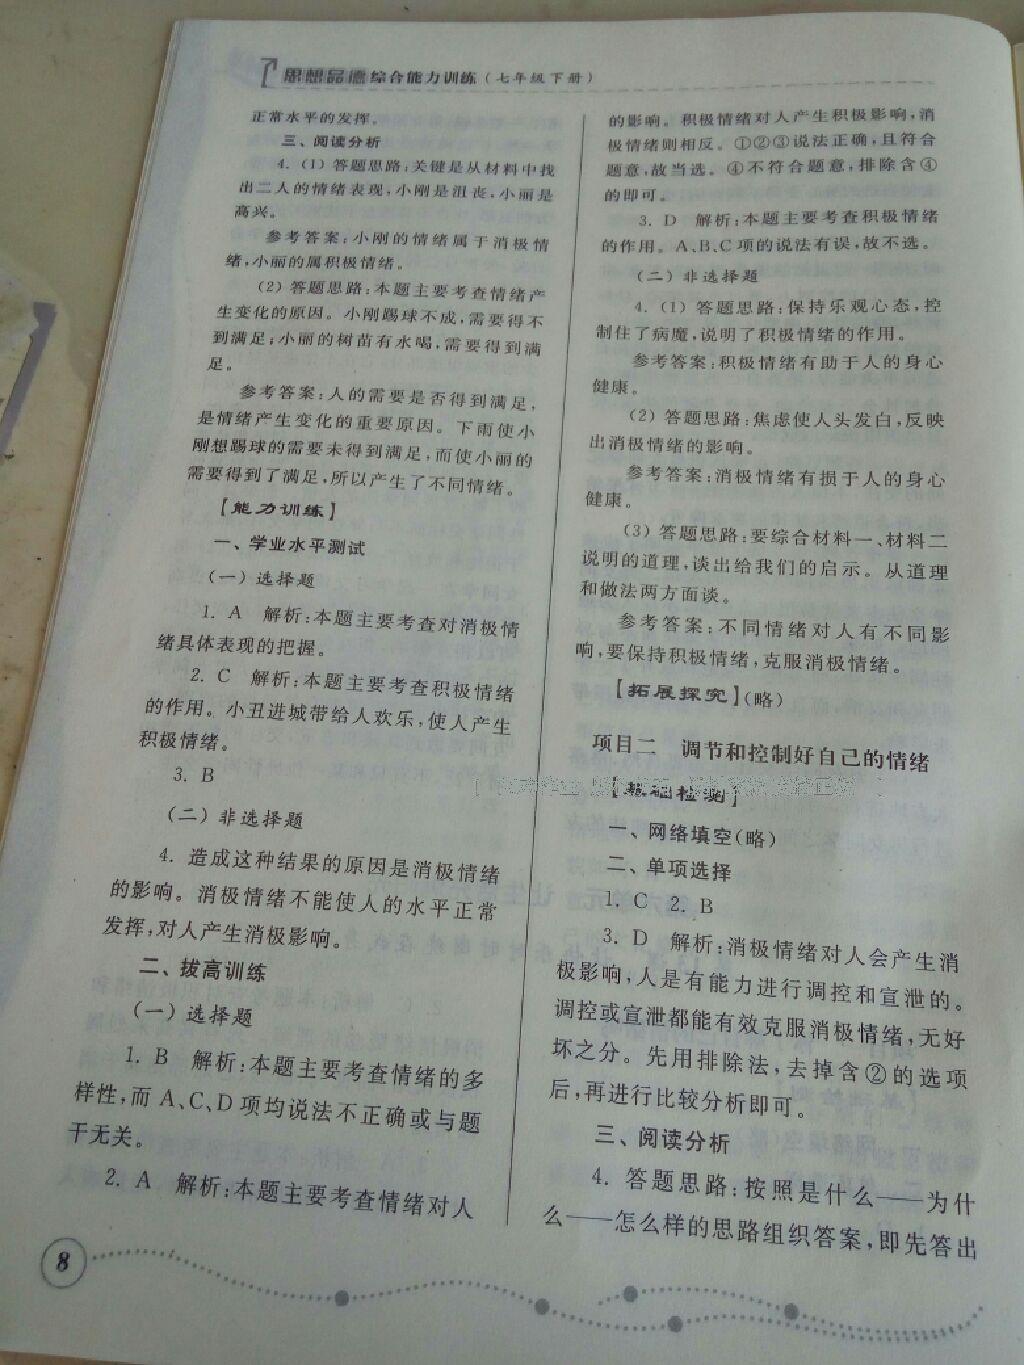 思想品德综合能力训练(七年级下册)
正常水平的发挥。
三、阅读分析
4.(1)答题思路:关键是从材料中找
出二人的情绪表现,小刚是沮丧,小丽是
高兴。
参考答案:小刚的情绪属于消极情
绪,小丽的属积极情绪。
(2)答题思路:本题主要考查情绪产
生变化的原因。小刚踢球不成,需要得不
到满足;小丽的树苗有水喝,需要得到满
足。
参考答案:人的需要是否得到满足,
是情绪产生变化的重要原因。下雨使小
刚想踢球的需要未得到满足,而使小丽的
需要得到了满足,所以产生了不同情绪。
【能力训练】
一、学业水平测试
(一)选择题
1. A 解析:本题主要考查对消极情
绪具体表现的把握。
2. C 解析:本题主要考查积极情绪
的作用。小丑进城带给人欢乐,使人产生
积极情绪。
3. B
(二)非选择题
4. 造成这种结果的原因是消极情绪
的影响。消极情绪不能使人的水平正常
发挥,对人产生消极影响。
二、拔高训练
(一)选择题
1. B 解析:本题主要考查情绪的多
样性,而 A、C、D 项均说法不正确或与题
干无关。
2. A 解析:本题主要考查情绪对人
的影响。积极情绪对人产生积极影响,消
极情绪则相反。①②③说法正确,且符合
题意,故当选。④不符合题意,排除含④
的即可。
3. D 解析:本题主要考查积极情绪
的作用。A、B、C 项的说法有误,故不选。
(二)非选择题
4.(1)答题思路:保持乐观心态,控
制住了病魔,说明了积极情绪的作用。
参考答案:积极情绪有助于人的身心
健康。
(2)答题思路:焦虑使人头发白,反映
出消极情绪的影响。
参考答案:消极情绪有损于人的身心
健康。
(3)答题思路:要综合材料一、材料二
说明的道理,谈出给我们的启示。从道理
和做法两方面谈。
参考答案:不同情绪对人有不同影
响,要保持积极情绪,克服消极情绪。
【拓展探究】(略)
项目二 调节和控制好自己的情绪
【基础检测】
一、网络填空(略)
二、单项选择
1. C 2. B
3. D 解析:消极情绪对人会产生消
极影响,人是有能力进行调控和宣泄的。
调控或宣泄都能有效克服消极情绪,无好
坏之分。先用排除法,去掉含②的选项
后,再进行比较分析即可。
三、阅读分析
4. 答题思路:按照是什么——为什
么——怎么样的思路组织答案,即先答出
8